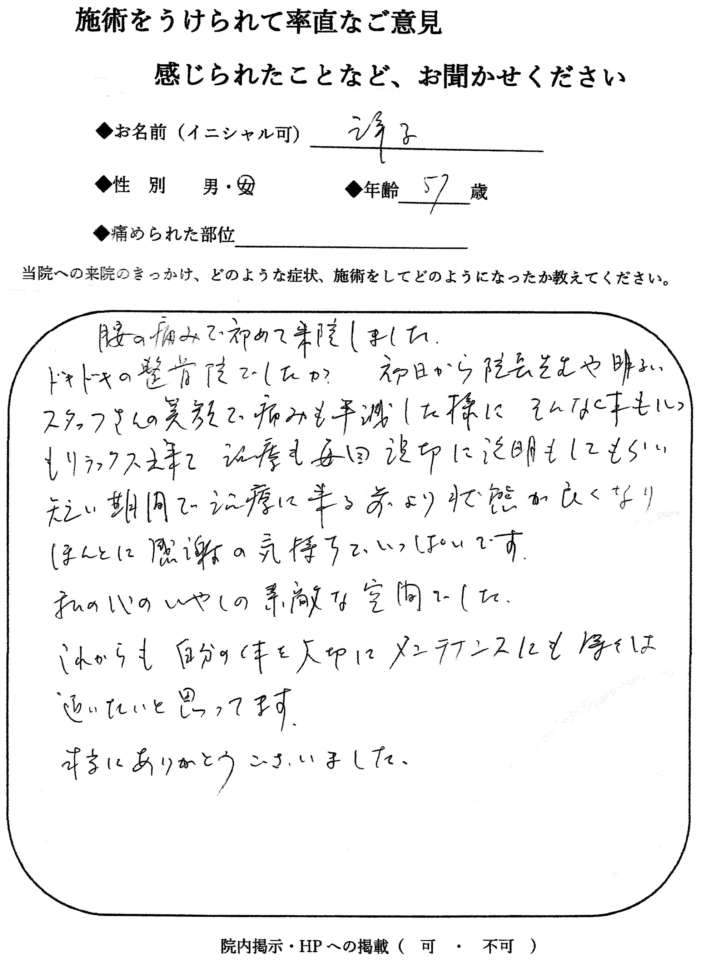 施術をうけられて率直なご意見
感じられたことなど、お聞かせください
◆お名前（イニシャル可） 洋子
◆性 別 男・女 ◆年齢 57 歳
◆痛められた部位
当院への来院のきっかけ、どのような症状、施術をしてどのようになったか教えてください。
腰の痛みで初めて来院しました。
ドキドキの整骨院でしたが 初日から院長先生や明るい
スタッフさんの笑顔で痛みも半減した様に そんな体もいつ
もリラックス出来て 治療も毎回親切に説明もしてもらい
短い期間で治療に来る前より状態が良くなり
ほんとに感謝の気持ちでいっぱいです。
私の心のいやしの素敵な空間でした。
これからも自分の体を大切にメンテナンスにも
通いたいと思ってます。
本当にありがとうございました。
院内掲示・HPへの掲載（ 可 ・ 不可 ）